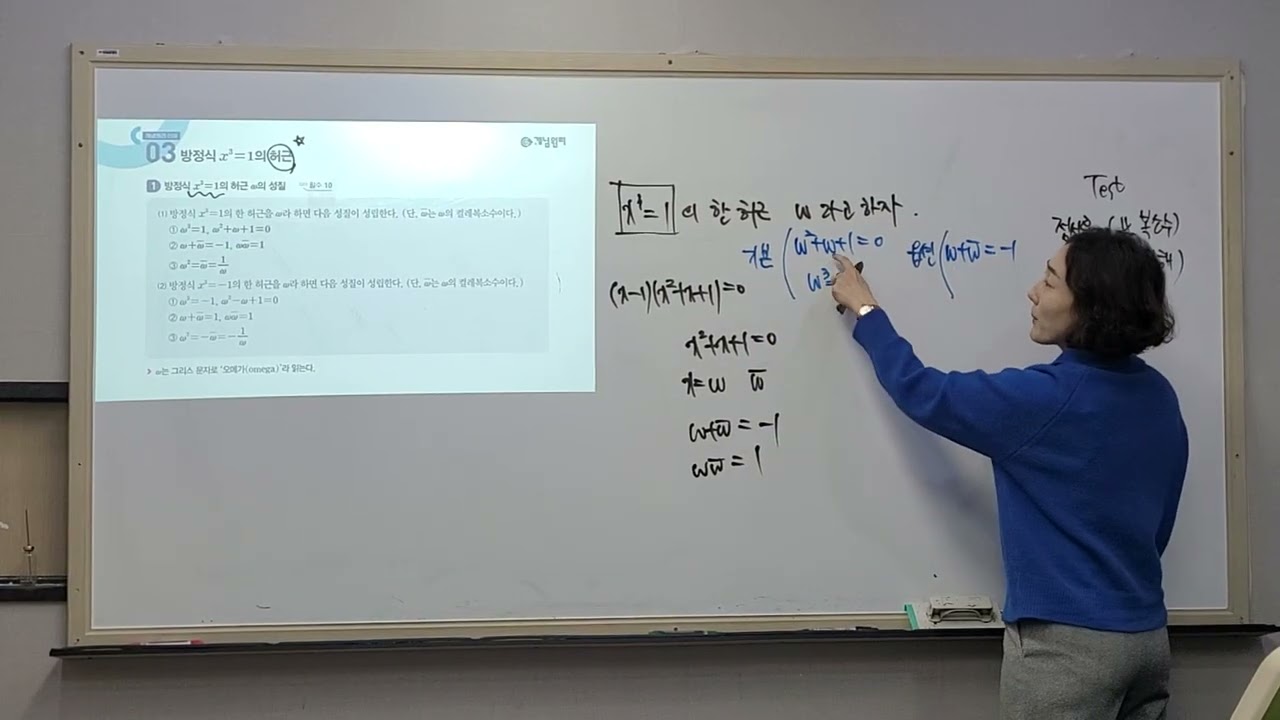 03 방정식 x³=1의 허근
개념원리
1 방정식 x³=1의 허근 ω의 성질
필수 10
(1) 방정식 x³=1의 한 허근을 ω라 하면 다음 성질이 성립한다. (단, ω̄는 ω의 켤레복소수이다.)
① ω³=1, ω²+ω+1=0
② ω+ω̄=-1, ωω̄=1
③ ω²=ω̄=1/ω
(2) 방정식 x³=-1의 한 허근을 ω라 하면 다음 성질이 성립한다. (단, ω̄는 ω의 켤레복소수이다.)
① ω³=-1, ω²-ω+1=0
② ω+ω̄=1, ωω̄=1
③ ω²=-ω̄=-1/ω
› ω는 그리스 문자로 '오메가(omega)'라 읽는다.
x³=1 의 한 허근 ω 라고 하자.
기본 ( ω²+ω+1=0
ω³=
(ω+ω̄=-1
(x-1)(x²+x+1)=0
x²+x+1=0
x=ω ω̄
ω+ω̄=-1
ωω̄=1
Test
복소수)